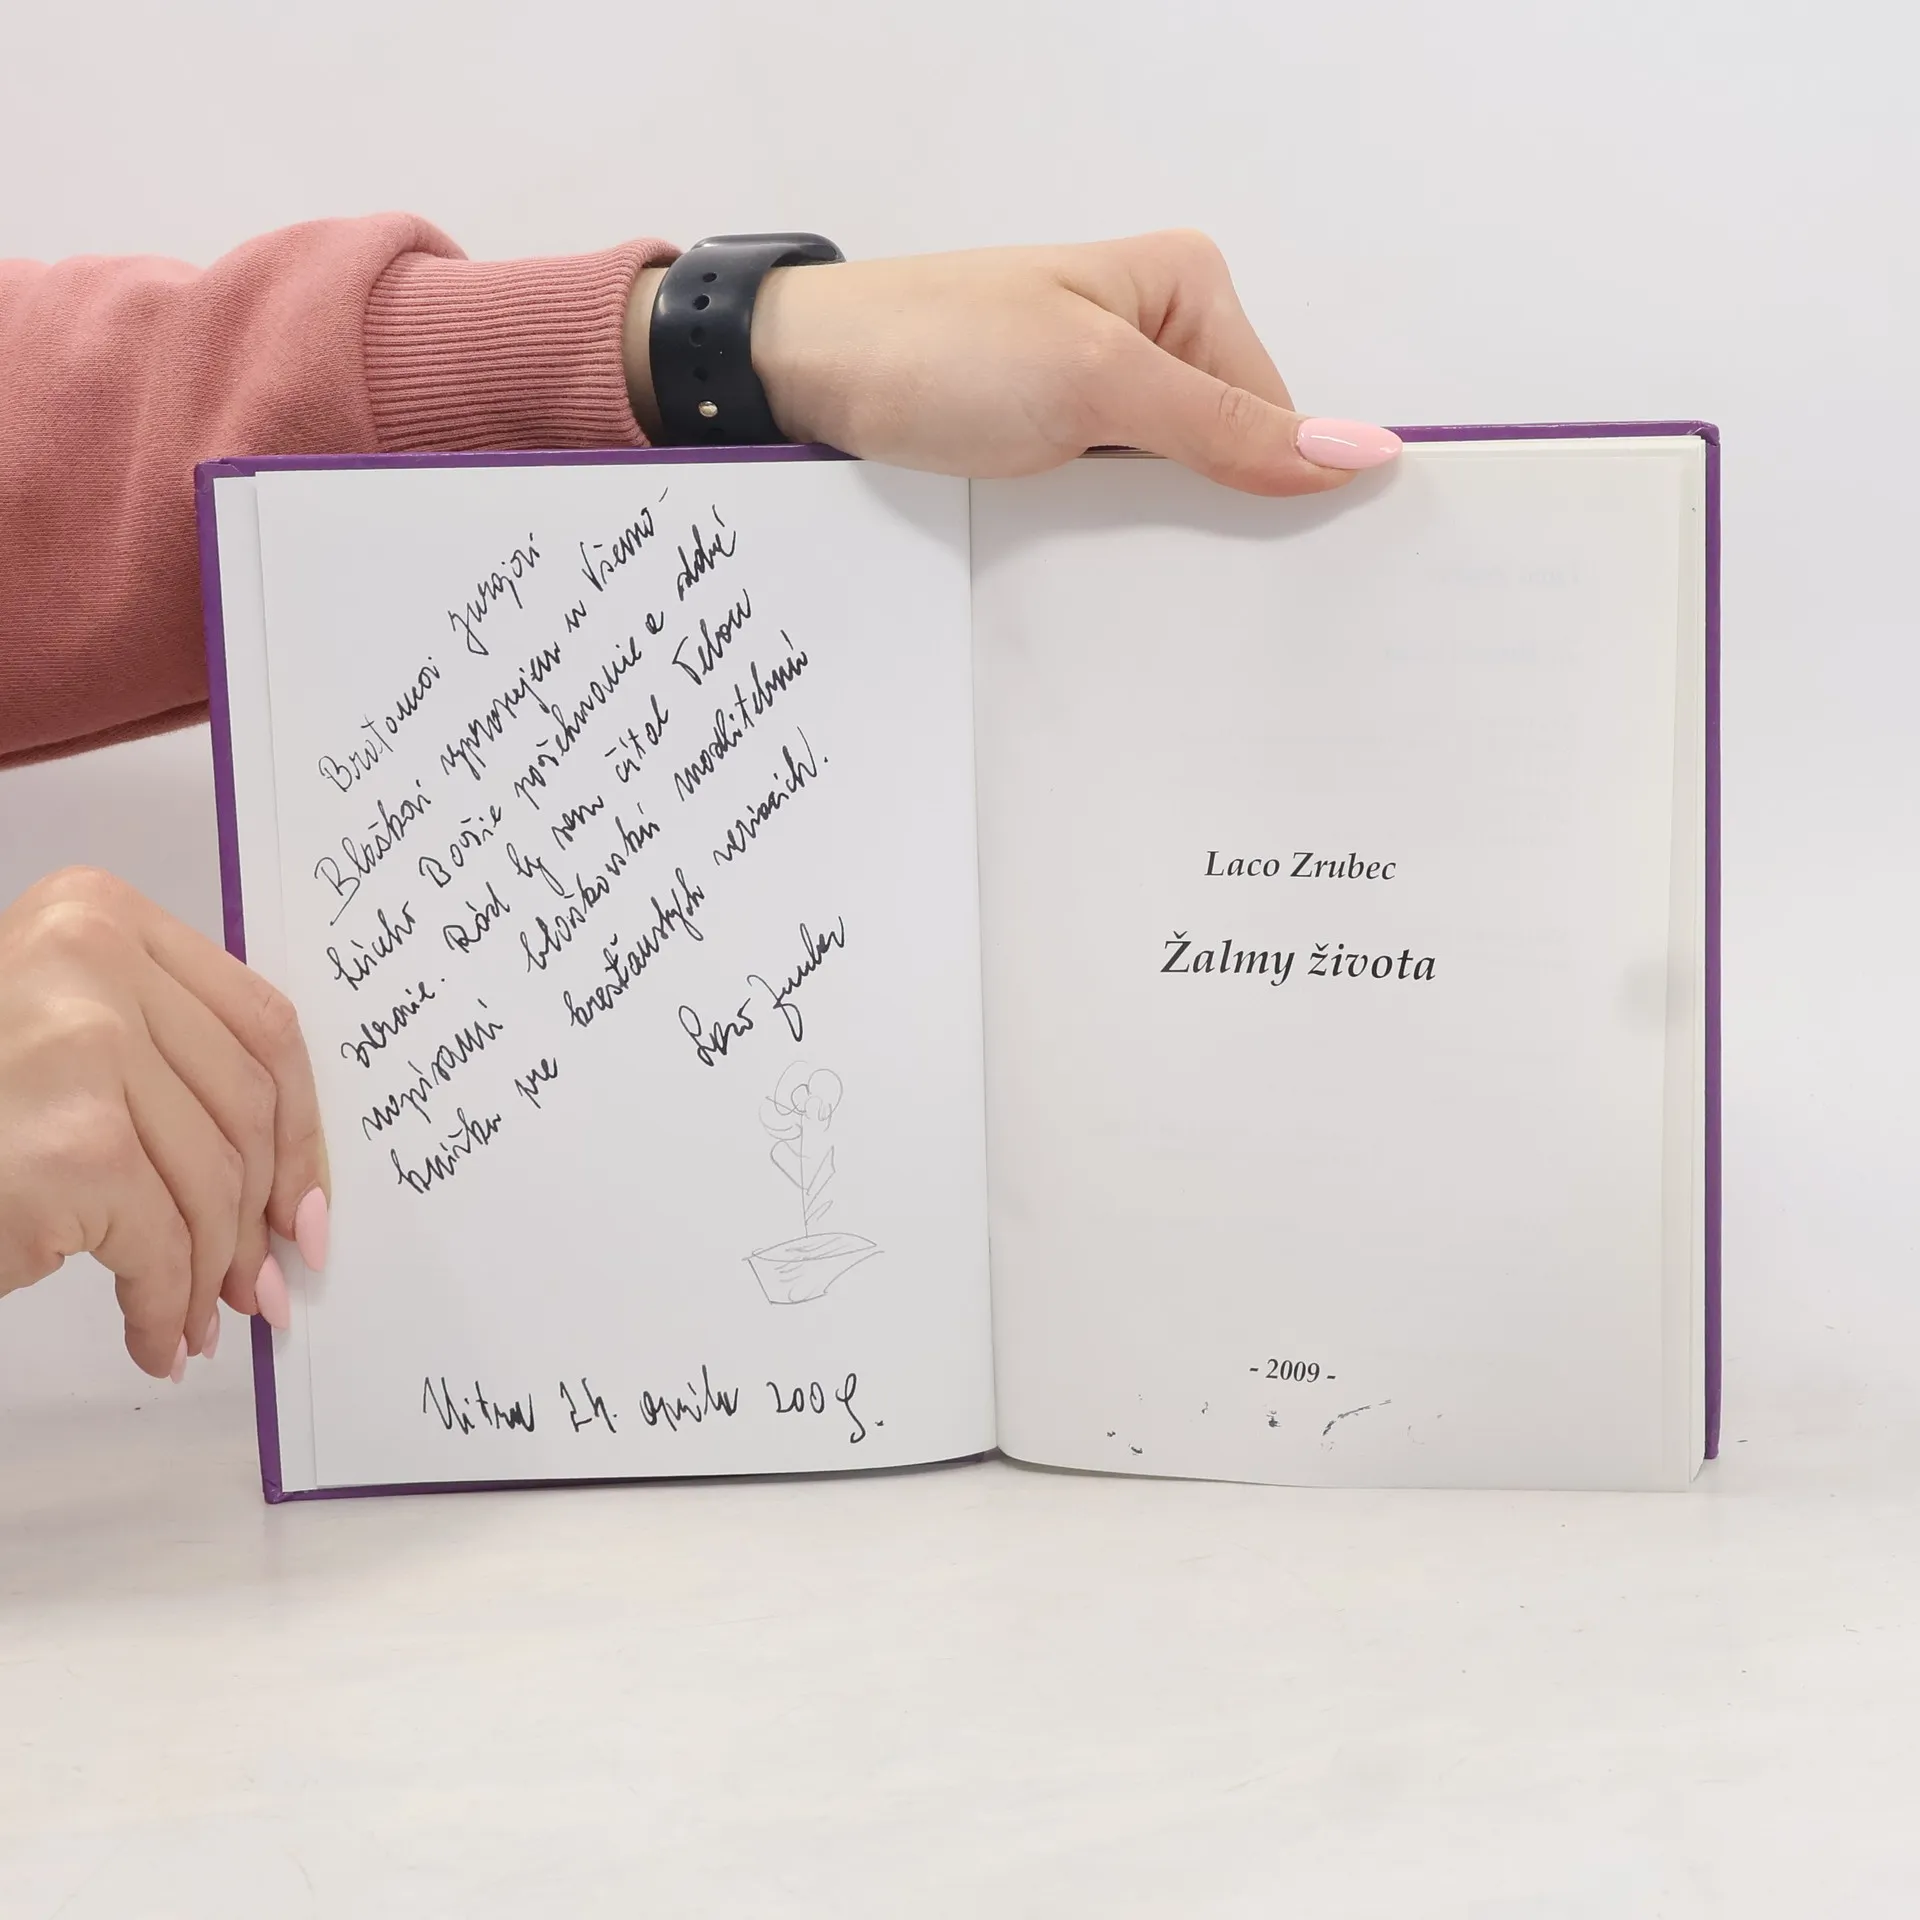 Braťomovi Jurajovi
Blaškovi vyprosujem u Všemo-
húceho Božie požehnanie a dobré
zdravie. Rád by som čítal Tebou
napísanú blaškovskú modlitebnú
knižku vre kresťanských veriacich.
Laco Zrubec
Nitra 24. apríla 2009.
Laco Zrubec
Žalmy života
- 2009 -